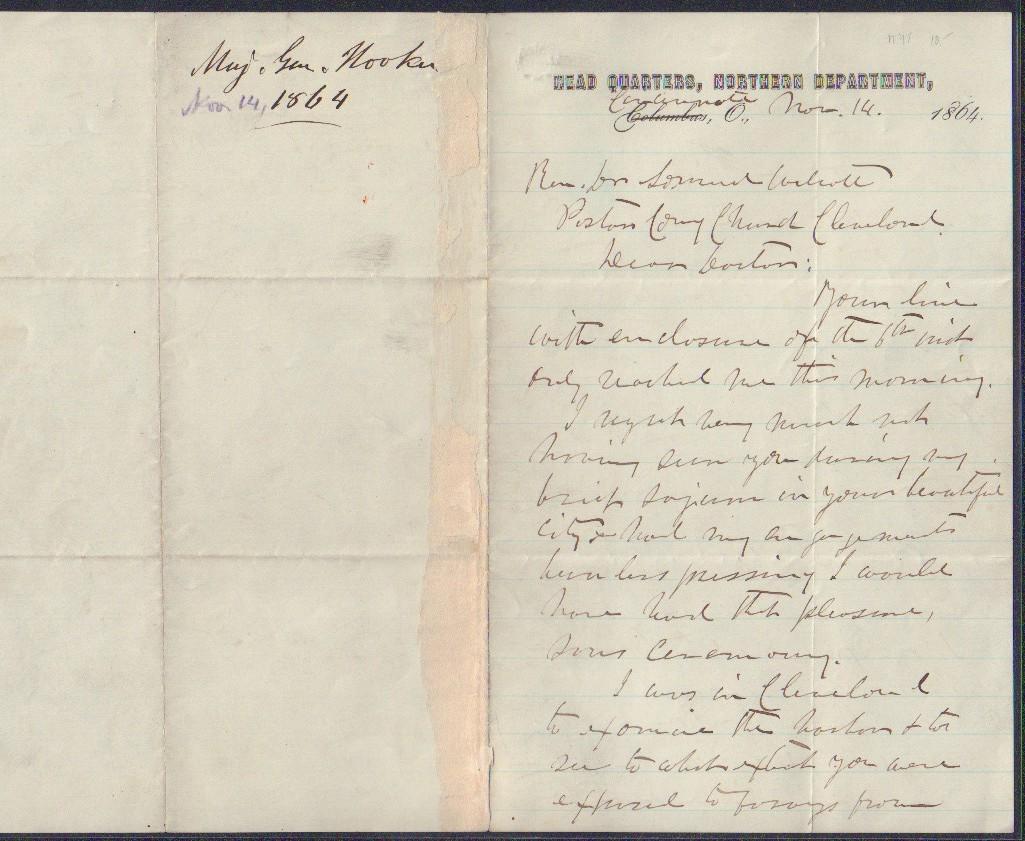 Maj. Gen. Hooker
Nov 14, 1864
HEAD QUARTERS, NORTHERN DEPARTMENT,
Cincinnati
Columbus, O., Nov. 14. 1864.
Rev. Dr Samuel Wolcott
Pastor Cong Church Cleveland.
Dear Doctor:
Your line
with enclosure of the 6th inst
only reached me this morning.
I regret very much not
having seen you during my
brief sojourn in your beautiful
city & had my engagements
been less pressing I would
have had that pleasure,
sans ceremony.
I was in Cleveland
to examine the harbor & to
see to what extent you were
exposed to forays from